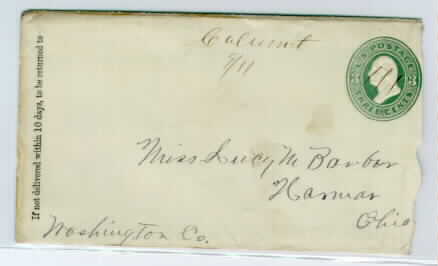 If not delivered within 10 days, to be returned to
Calumet
9/11
U.S. POSTAGE
THREE CENTS
Miss Lucy M Barber
Harmar
Ohio
Washington Co.